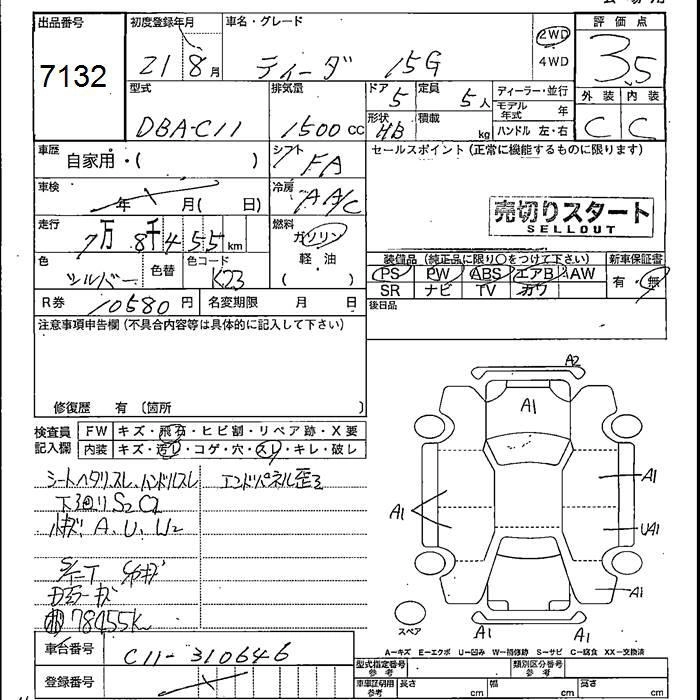 出品番号 初度登録年月 車名・グレード 評価点
7132 21 8月 ティーダ 15G 2WD 4WD 3.5
型式 排気量 ドア 定員 ディーラー・並行 外装 内装
DBA-C11 1500cc 5 5人 モデル年式 年 C C
形状 HB 積載 kg ハンドル 左・右
車歴 自家用・( ) シフト FA セールスポイント(正常に機能するものに限ります)
車検 年 月( 日) 冷房 AA/C
売切りスタート
SELLOUT
走行 7万8千455km 燃料 ガソリン
軽油
( )
色 シルバー 色替 色コード K23
装備品(純正品に限り〇をつけて下さい) 新車保証書
PS PW ABS エアB AW 有・無
SR ナビ TV カワ
R券 10580円 名変期限 月 日 後日品
注意事項申告欄(不具合内容等は具体的に記入して下さい)
修復歴 有 〔箇所 〕
検査員記入欄 FW キズ・飛石・ヒビ割・リペア跡・X要
内装 キズ・汚レ・コゲ・穴・スレ・キレ・破レ
シートヘタリスレ、ハンドルスレ エンドパネル歪ミ
下廻りS2C2
小キズ A、U、W2
78455k
A2
A1
A1
A1
UA1
A1
スペア
A-キズ E-エクボ U-凹み W-補修跡 S-サビ C-腐食 XX-交換済
車台番号 C11-310646
登録番号
型式指定番号 参考 類別区分番号 参考
車庫証明用 参考 長さ cm 幅 cm 高さ cm